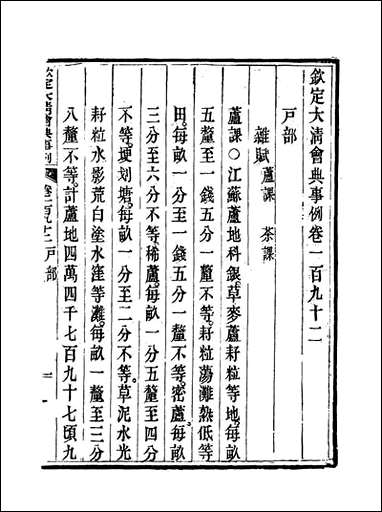 欽定大清會典事例卷一百九十二
戶部
雜賦 蘆課 茶課
蘆課○江蘇蘆地科銀草麥蘆耔粒等地每畝
五釐至一錢五分一釐不等耔粒蕩灘熟低等
田每畝一分至一錢五分一釐不等密蘆每畝
三分至六分不等稀蘆每畝一分五釐至四分
不等埂划塘每畝一分至二分不等草泥水光
耔粒水影荒白塗水窪等灘每畝一釐至三分
八釐不等計蘆地四萬四千七百九十七頃九
欽定大清會典事例 卷一百九十二 戶部 一